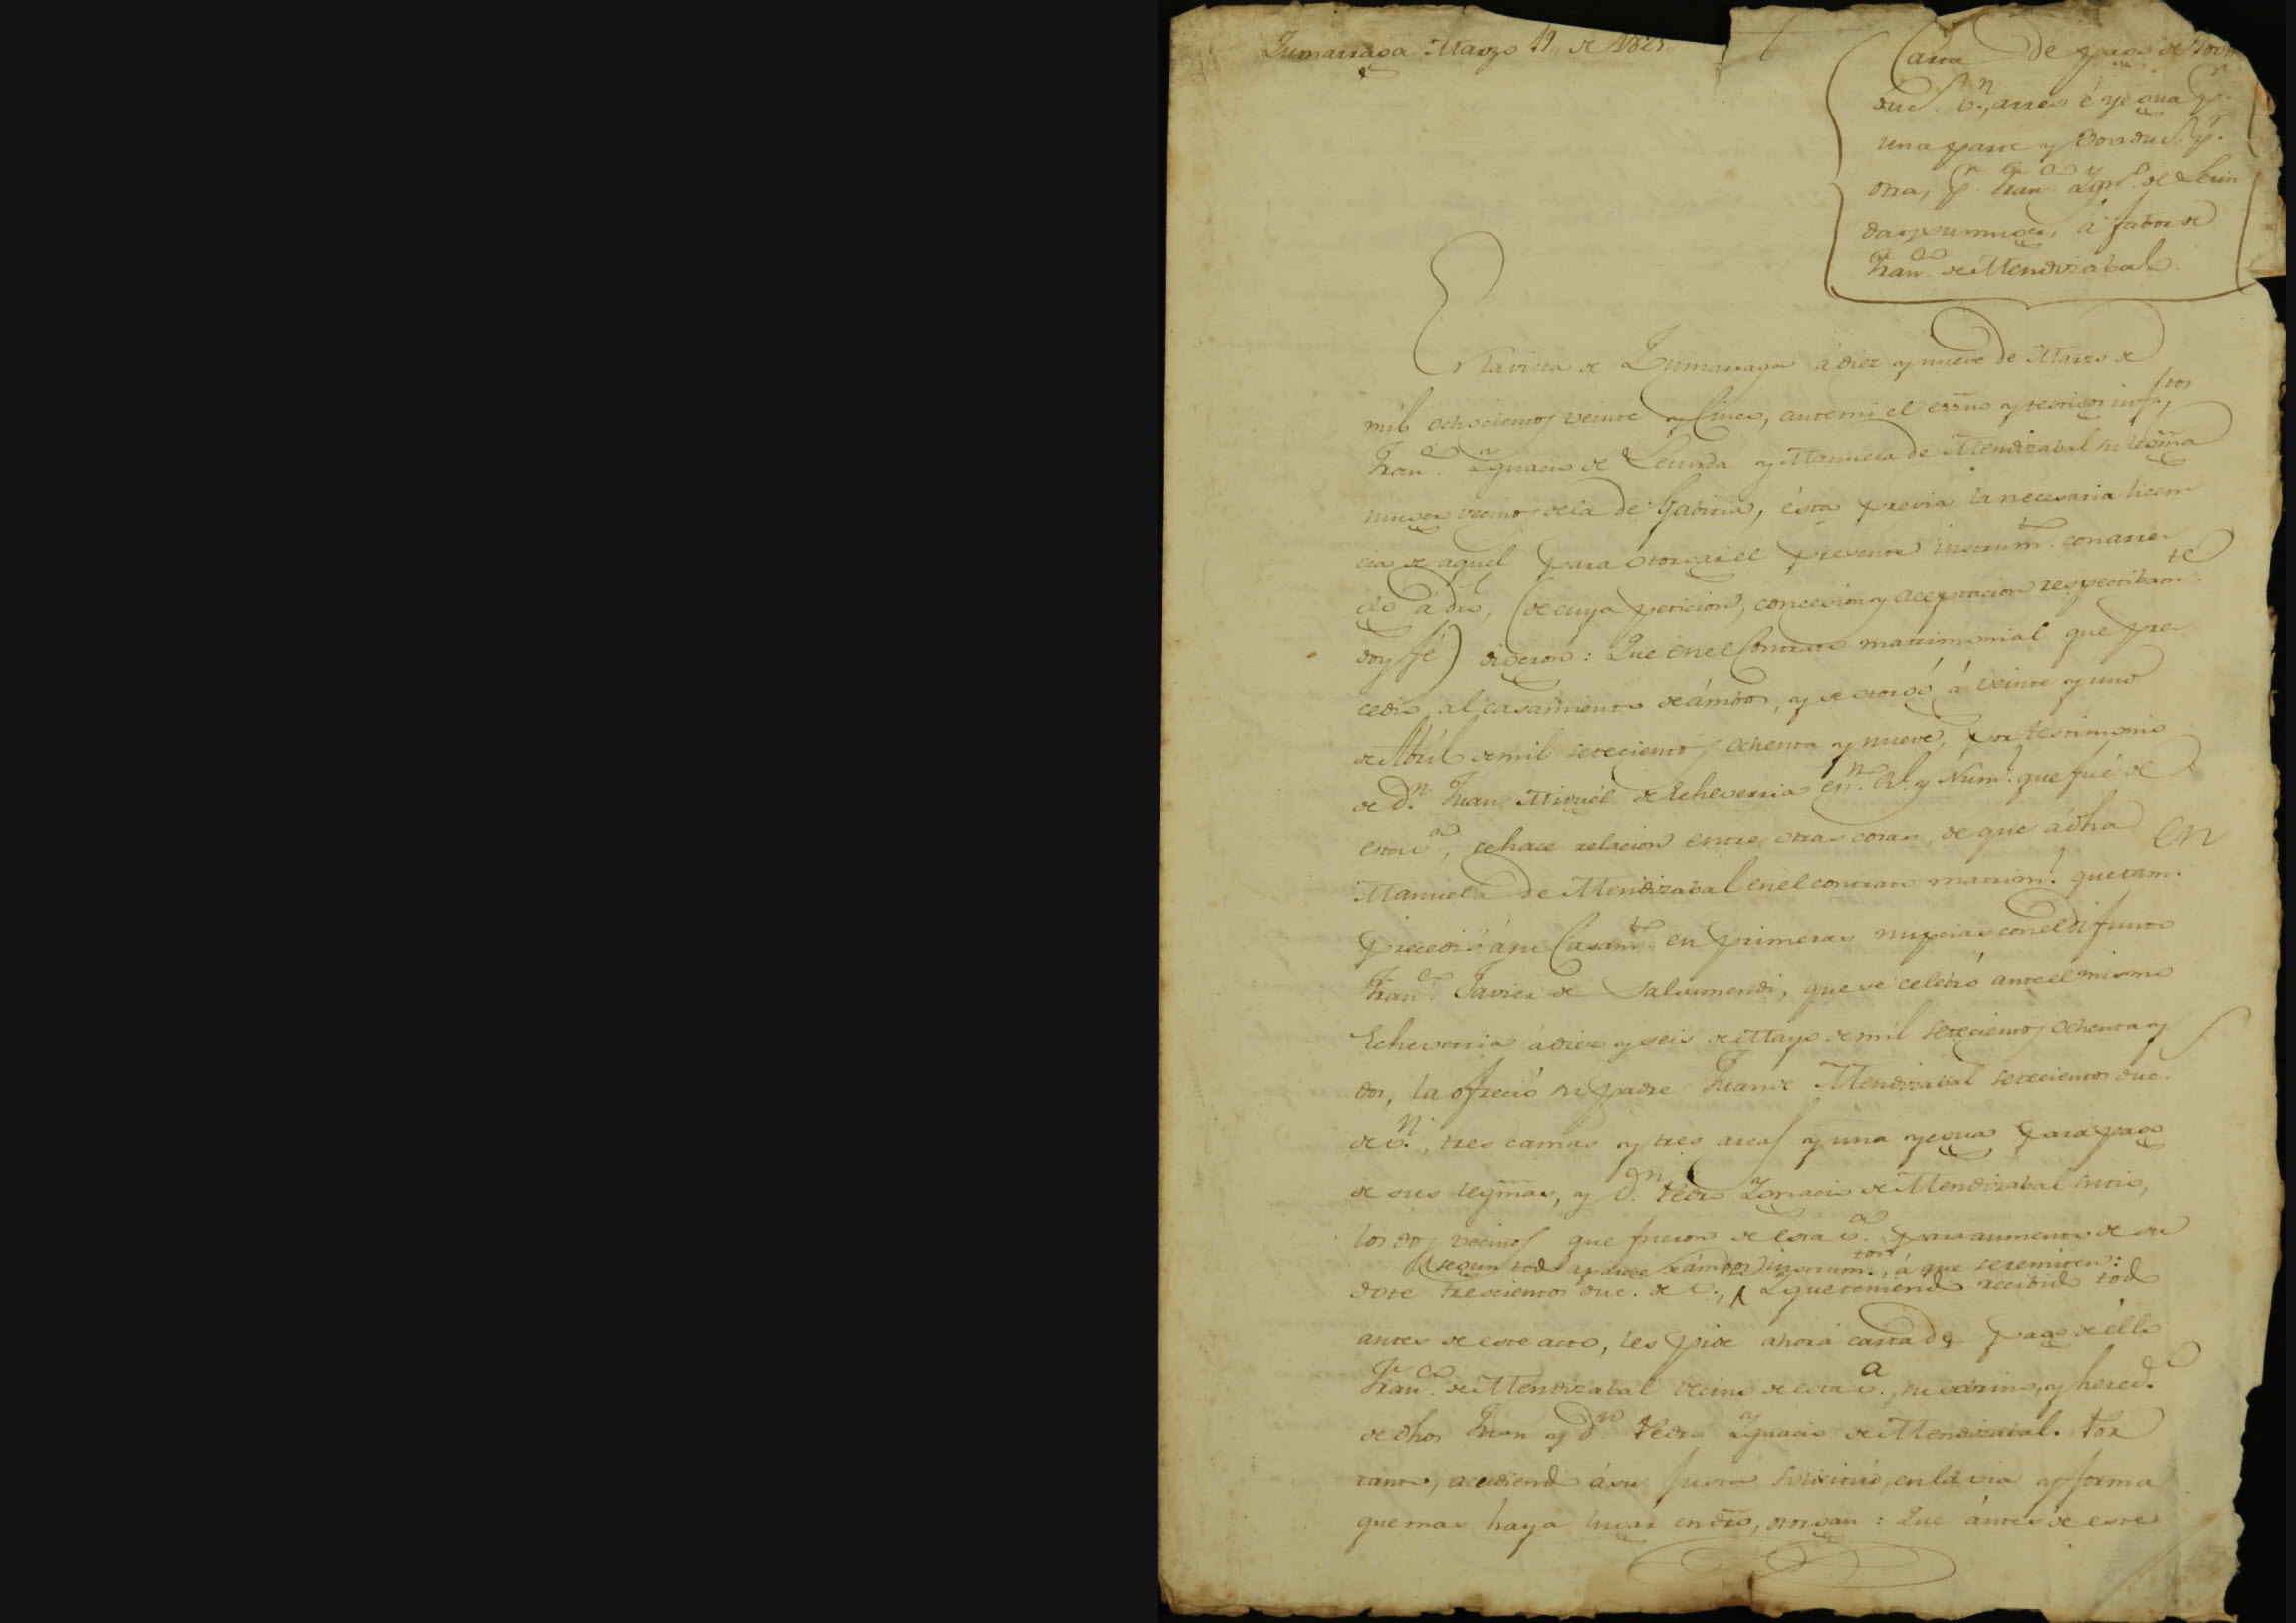 Zumarraga Marzo 19,, de 1825,,
Carta de pago de 700
duc.s v.n, arreo é yegua p.r
una parte y 300 duc.s p.r
otra, p.r Fran.co Ygn.o de Leun
da y su muger, á fabor de
Fran.co de Mendizabal.
En la villa de Zumarraga á diez y nueve de Marzo de
mil ochocientos veinte y cinco, ante mi el essno y testigos infr.tos,
Fran.co Ygnacio de Leunda y Manuela de Mendizabal su legma
muger vecinos de la de Gabiria, ésta previa la necesaria licen
cia de aquel para otorgar el presente instrum.to con arre
glo á dro, (de cuya peticion, concesion y aceptacion respectibam.te
doy fé) digeron: Que en el Contrato matrimonial que pre
cedió al casamiento de ámbos, y se otorgó á veinte y uno
de Abril de mil setecientos ochenta y nueve, por testimonio
de D.n Juan Miguél de Echeverria es.no R.l y Num.l que fué de
esta v.a, se hace relacion entre otras cosas, de que á dha
Manuela de Mendizabal en el contrato matrim.l que tam.en
precedió á su Casam.to en primeras nupcias con el difunto
Fran.co Javier de Salsamendi, que se celebró ante el mismo
Echeverria á diez y seis de Mayo de mil setecientos ochenta y
dos, la ofreció su padre Juan de Mendizabal setecientos duc.s
de v.n, tres camas y tres arcas y una yegua para pago
de sus legmas, y D.n Pedro Ygnacio de Mendizabal su tio,
los dos vecinos que fueron de esta v.a para aumento de su
segun todo aparece de ámbos instrum.tos, á que se remiten:
dote trescientos duc.s de v., Y que teniendo recibido todo
antes de este acto, les pide ahora carta de pago de éllo
Fran.co de Mendizabal vecino de esta v.a, su sobrino, y hered.o
de dhos Juan y D.n Pedro Ygnacio de Mendizabal. Por
tanto, accediendo á su justa solicitud, en la via y forma
que mas haya lugar en dro, otorgan: Que ántes de este